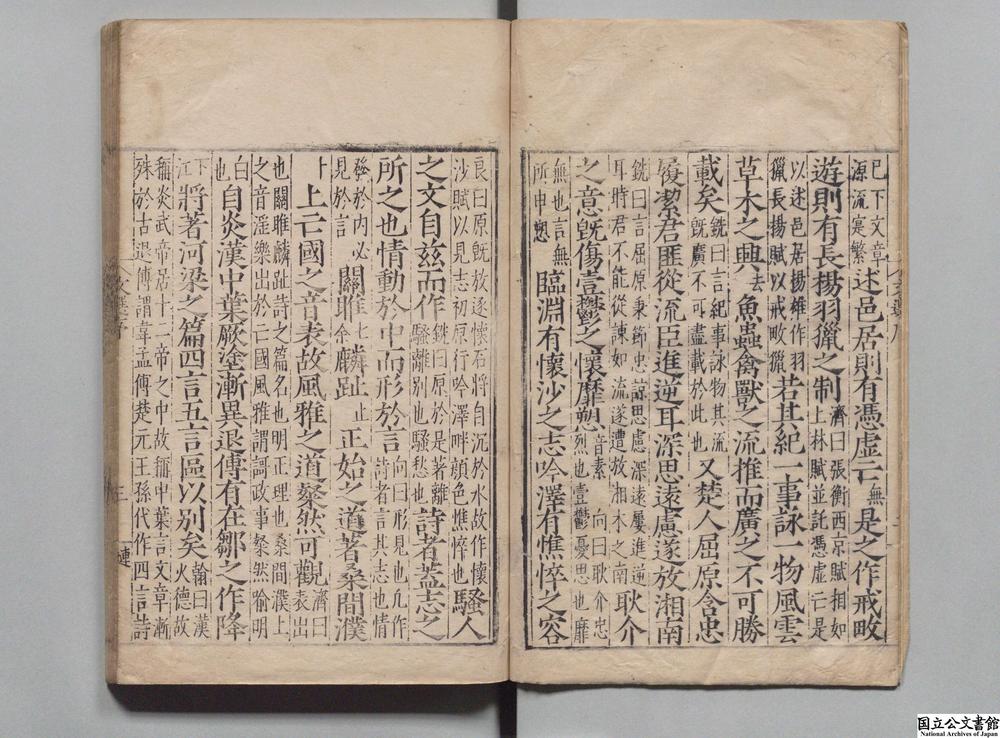 已下文章源流寔繁述邑居則有憑虛亡無是之作戒畋
遊則有長楊羽獵之制濟曰張衡西京賦相如上林賦並託憑虛亡是
以述邑居揚雄作羽獵長揚賦以戒畋獵若其紀一事詠一物風雲
草木之興去魚蟲禽獸之流推而廣之不可勝
載矣銑曰言紀事詠物其流既廣不可盡載於此也又楚人屈原含忠
履潔君匪從流臣進逆耳深思遠慮遂放湘南
銑曰言屈原秉節忠諒思慮深遠屢進逆耳時君不能從諫如流遂遭放湘水之南耿介
之意既傷壹鬱之懷靡愬音素向曰耿介忠烈也壹鬱憂思也靡
無也言無所申愬臨淵有懷沙之志吟澤有憔悴之容
良曰原既放逐懷石將自沉於水故作懷沙賦以見志初原行吟澤畔顏色憔悴也騷人
之文自茲而作銑曰原於是著離騷離別也騷愁也詩者蓋志之
所之也情動於中而形於言向曰形見也凡作詩者言其志也情
發於內必見於言關雎七余麟趾止正始之道著桑間濮
卜上亡國之音表故風雅之道粲然可觀濟曰表出
也關雎麟趾詩之篇名也明正理也桑間濮上之音淫樂出於亡國風雅謂謌政事粲然喻明
白也自炎漢中葉厥塗漸異退傅有在鄒之作降
下江將著河梁之篇四言五言區以別矣翰曰漢火德故
稱炎武帝居十二帝之中故稱中葉言文章漸殊於古退傅謂韋孟傅楚元王孫代作四言詩
文選序
三
連
国立公文書館
National Archives of Japan